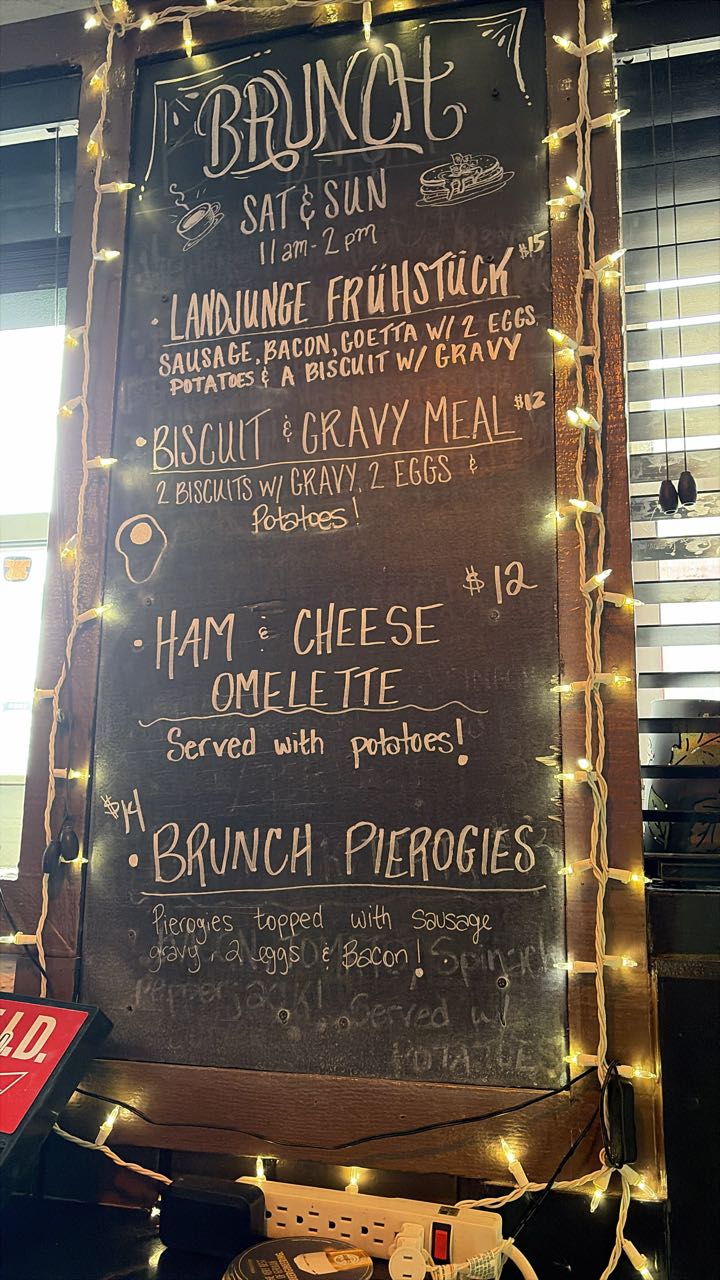 BRUNCH
SAT & SUN
11am-2pm
• LANDJUNGE FRÜHSTÜCK $15
SAUSAGE, BACON, GOETTA W/ 2 EGGS
POTATOES & A BISCUIT W/ GRAVY
• BISCUIT & GRAVY MEAL $12
2 BISCUITS W/ GRAVY, 2 EGGS &
Potatoes!
$12
• HAM & CHEESE
OMELETTE
Served with potatoes!
$14
• BRUNCH PIEROGIES
Pierogies topped with sausage
gravy, 2 eggs & Bacon!
Spinach
Pepperjack! Served w/
POTATOES